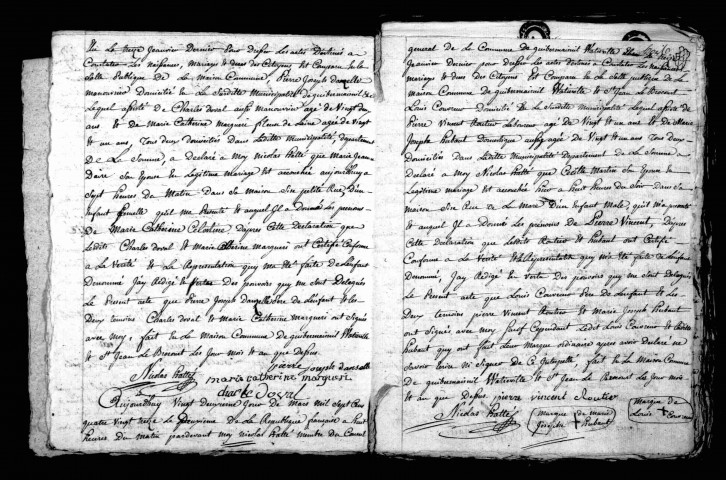 Elu Le treize Janvier Dernier Pour Dresser Les actes Destinés a
Constater Les naissances, mariages et deces des Citoyens Est Comparu En la
Salle Publique De La Maison Commune, Pierre Joseph Danselle
manouvrier Domicilié En La Ditte Municipalité de quibermainvil
Lequel assisté de Charles Doval aussi manouvrier agé de Vingt Deux
ans Et De Marie Catherine Margueri fileuse de Laine agée de Vingt
Et un ans, Tous deux Domiciliés Dans Laditte municipalité, Département
De La Somme, a déclaré a Moy Nicolas Hatté que Marie Jeanne
Daire Son Epouse En Legitime Mariage Est accouchée aujourd'huy a
Sept heures du Matin Dans Sa Maison Sise petite Rue, D'un
Enfant femelle qu'il ma Presenté Et auquel Il a Donné Les prenoms
De Marie Catherine Celestine Dapres Cette Declaration que
Ledits Charles Doval Et Marie Catherine Margueri ont Certifié Conforme
a La Verité Et La Representation quy ma Eté faite de L'enfant
Denommé Jay Redigé En Vertu Des pouvoirs quy me Sont Delegués
Le Present acte que Pierre Joseph Danselle Pere de L'enfant Et les
Deux temoins Charles Doval Et Marie Catherine Margueri ont Signés
avec moy, fait En La Maison Commune De quibermainvil Wativille
Et St Jean Le Brocourt Les Jour Mois Et an que Dessus
Nicolas Hatté pierre Joseph danselle
maria catherine margueri
charle Doval
Aujourdhuy Vingt Deuxieme Jour de Mars Mil Sept Cent
quatre Vingt treize Le Deuxieme De La Republique française a huit
heures Du Matin pardevant moy Nicolas Hatté membre Du Conseil
general de La Commune de quibermainvil Wativille Elu Le treize
Janvier dernier pour dresser Les actes destinés a Constater Les naissances
mariages Et deces des Citoyens Est Comparu En La Salle publique de La
Maison Commune de quibermainvil Wativille Et St Jean Le Brocourt
Louis Couvreur Domicilié De La Ditte municipalité Lequel assisté de
Pierre Vincent Routier Laboureur agé De Vingt Et un ans Et De Marie
Joseph Hubaut Domestique aussy agée de Vingt Et un ans Tous Deux
Domiciliés Dans Laditte Municipalité Departement de La Somme a
Declaré a moy Nicolas Hatté que Colette Martin Sa Epouse En
Legitime mariage Est accouchée hier a huit heures du Soir dans Sa
maison Sise Rue de La Mare D'un Enfant Male, qu'il m'a presenté
Et auquel Il a Donné Les prenoms de Pierre Vincent, D'apres
Cette declaration que Lesdits Routier Et Hubaut ont Certifié
Conforme a La Verité Et La Representation quy ma Eté faite de L'enfant
Denommé, Jay Redigé En Vertu Des pouvoirs quy me Sont Delegués
Le Present acte que Louis Couvreur Pere de L'enfant Et Les
Deux temoins pierre Vincent Routier Et Marie Joseph Hubaut
ont Signés avec moy Sauf Cependant Ledit Louis Couvreur Et Laditte
Hubaut quy ont fait Leur Marque ordinaire apres avoir Declaré ne
Savoir Ecrire ni Signer De Ce Interpellé, fait En La Maison Commune
de quibermainvil Wativille Et St Jean Le Brocourt Le Jour mois
Et an que Dessus pierre vincent Routier
Nicolas Hatté marque de marie Joseph + Hubaut marque de Louis + Couvreur